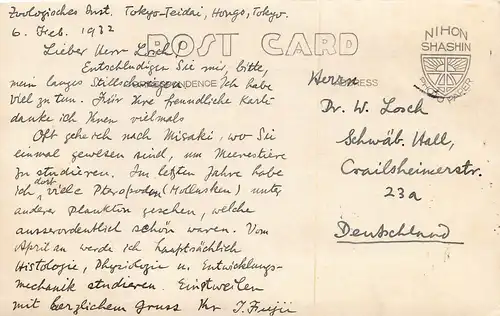 Zoologisches Inst. Tokyo-Teidai, Hongo, Tokyo.
6. Feb. 1932
POST CARD
Lieber Herr Losch!
Entschuldigen Sie mir, bitte,
mein langes Stillschweigen. Ich habe
viel zu tun. Für Ihre freundliche Karte
danke ich Ihnen vielmals
Oft gehe ich nach Misaki, wo Sie
einmal gewesen sind, um Meerestiere
zu studieren. Im letzten Jahre habe
ich dort viele Pteropoden (Mollusken) unter
anderer Plankton gesehen, welche
ausserordentlich schön waren. Vom
April an werde ich hauptsächlich
Histologie, Physiologie u. Entwicklungs-
mechanik studieren. Einstweilen
mit herzlichem Gruss Ihr J. Fujii
NIHON
SHASHIN
PHOTO PAPER
Herrn
Dr. W. Losch
Schwäb. Hall,
Crailsheimerstr.
23a
Deutschland